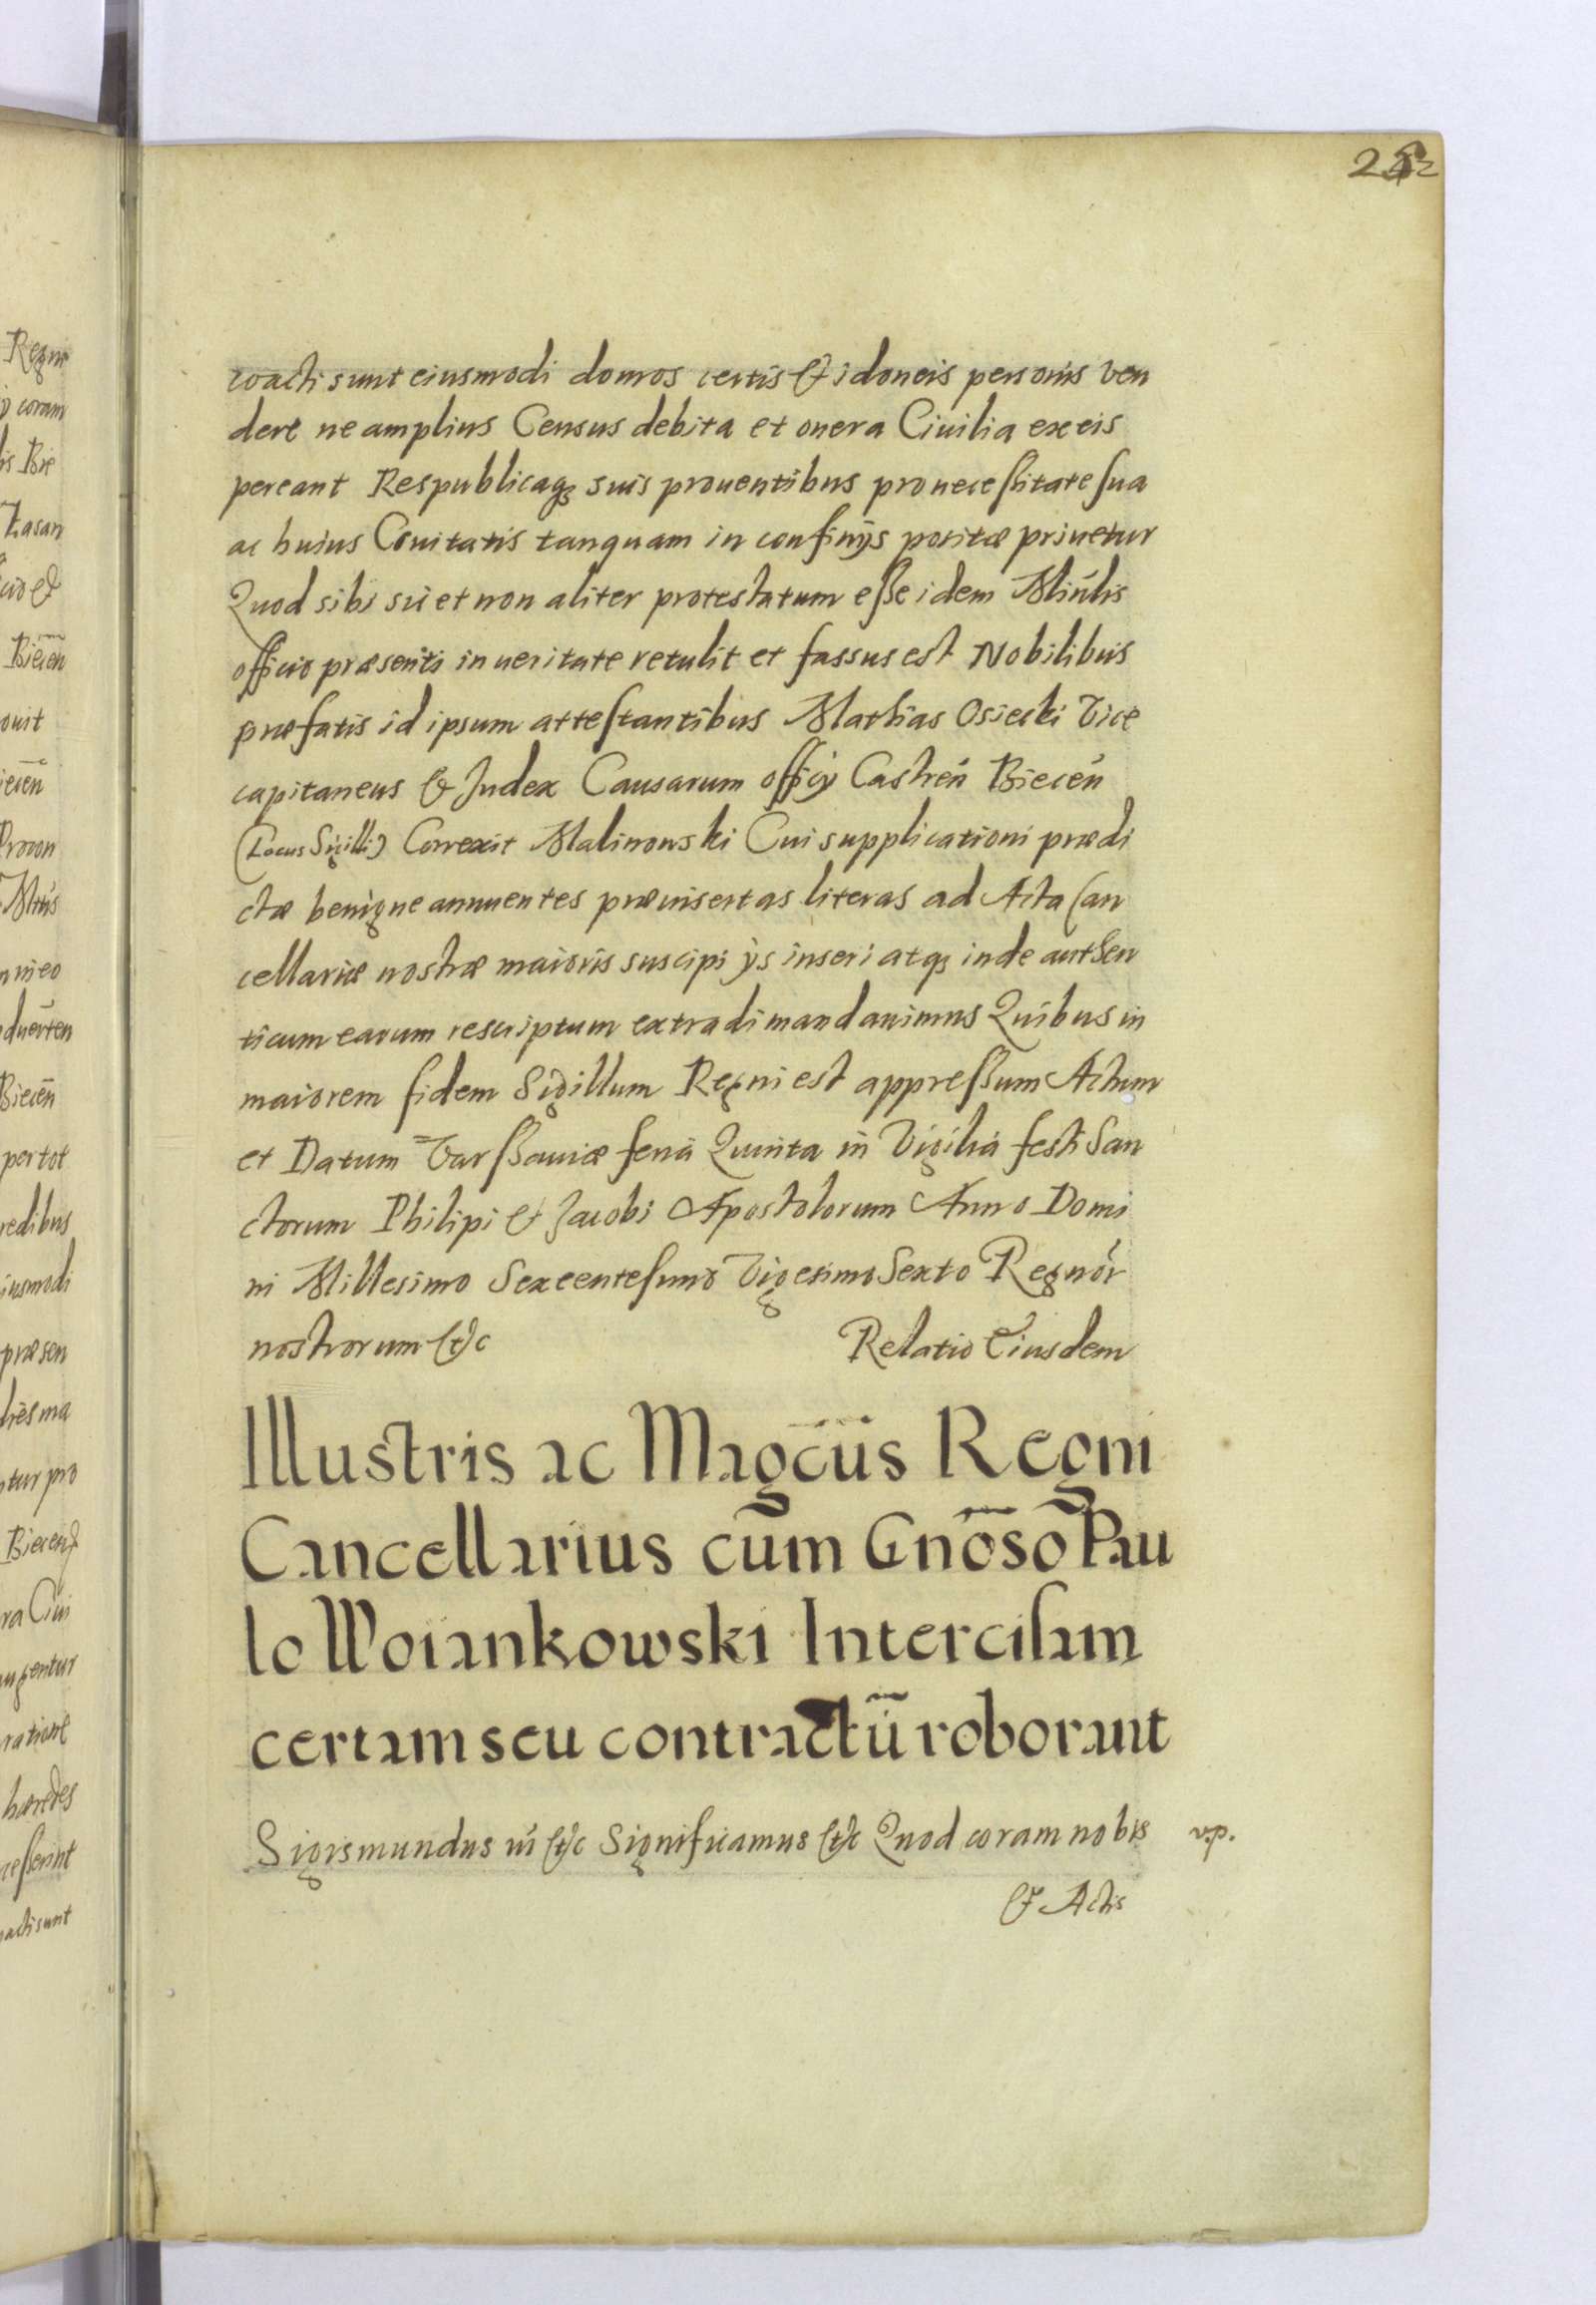 coacti sunt eiusmodi domos certis & idoneis personis ven
dere ne amplius Census debita et onera Ciuilia ex eis
pereant Respublicaq; suis prouentibus pro necessitate sua
ac huius Ciuitatis tanquam in confinijs positæ priuetur
Quod sibi sic et non aliter protestatum esse idem Minrlis
officio præsenti in ueritate retulit et fassus est Nobilibus
præfatis id ipsum attestantibus Mathias Osiecki Vice
capitaneus & Judex Causarum officij Castreñ Bieceñ
(Locus Sigilli) Correxit Malinowski Cui supplicationi prædi
ctæ benigne annuentes præinsertas literas ad Acta Can
cellariæ nostræ maioris suscipi ijs inseri atq; inde authen
ticum earum rescriptum extradi mandauimus Quibus in
maiorem fidem Sigillum Regni est appressum Actum
et Datum Varssauiæ feria Quinta in Vigilia festi San
ctorum Philipi & Jacobi Apostolorum Anno Domi
ni Millesimo Sexcentesimo Vigesimo Sexto Regnor
nostrorum &c Relatio Eiusdem
Illustris ac Magcus Regni
Cancellarius cum Gnoso Pau
lo Woiankowski Intercisam
certam seu contractū roborant
Sigismundus iii &c Significamus &c Quod coram nobis v.p.
& Actis